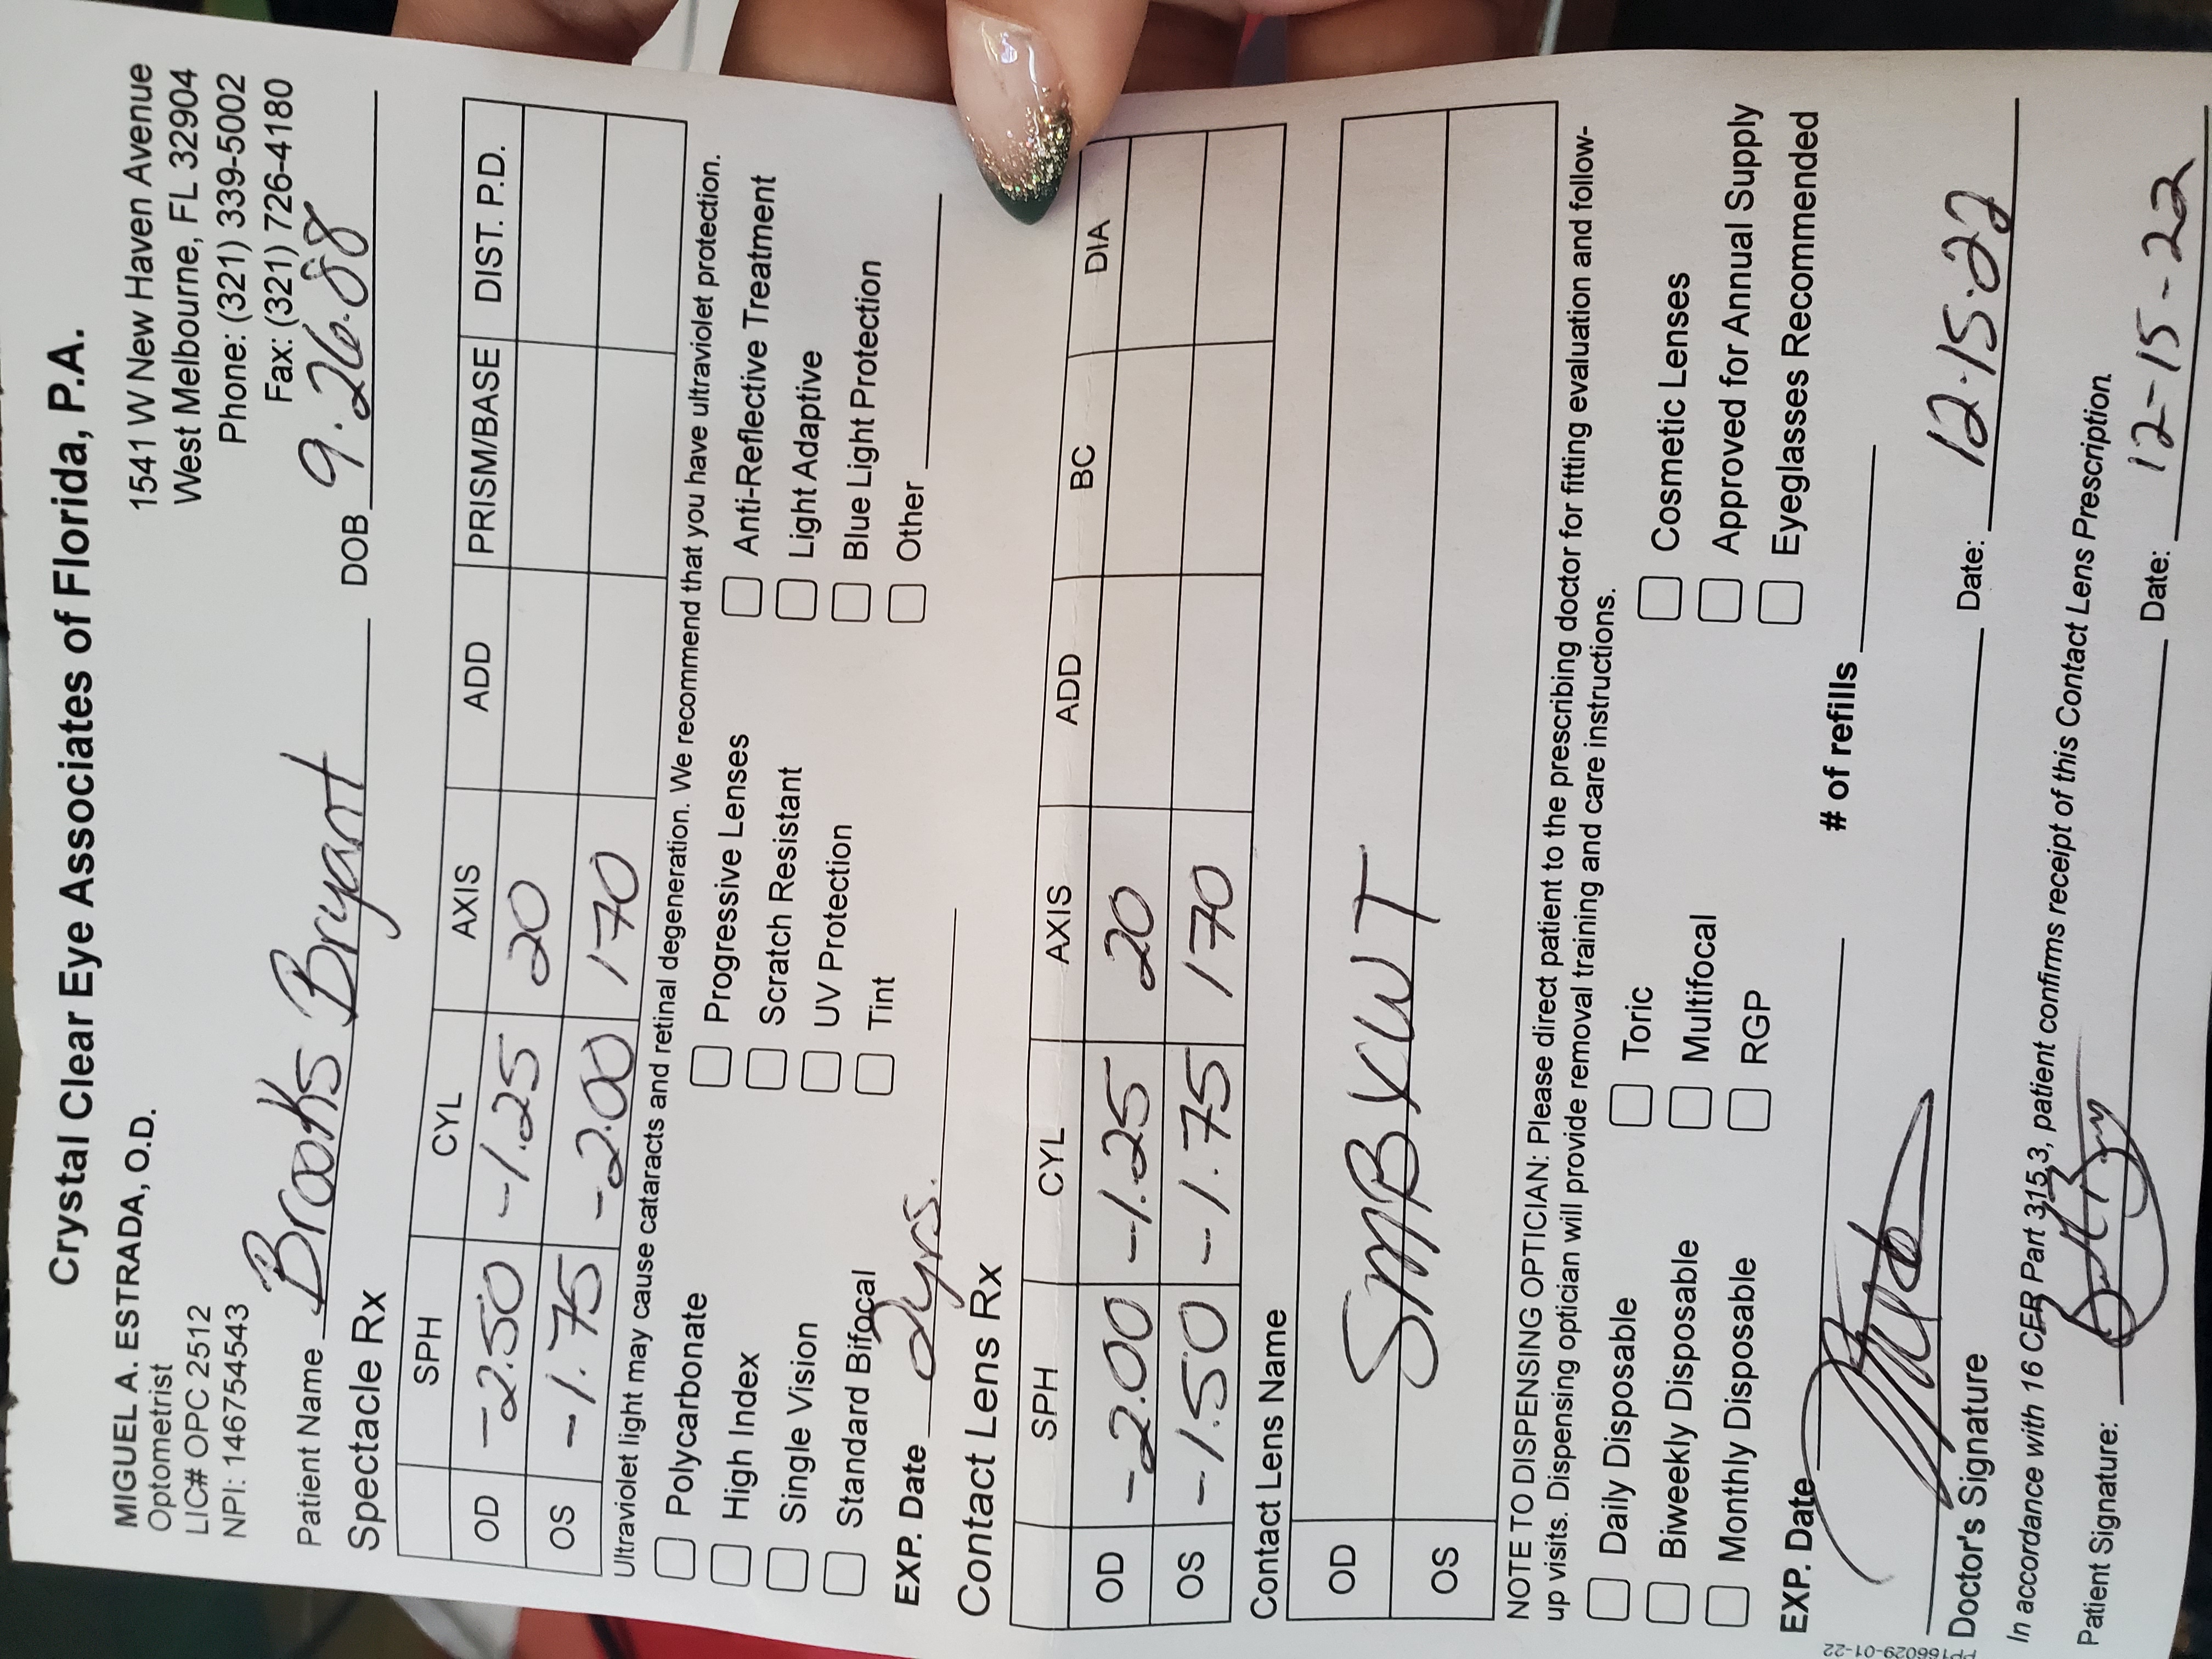 Crystal Clear Eye Associates of Florida, P.A.
MIGUEL A. ESTRADA, O.D.
Optometrist
LIC# OPC 2512
NPI: 146754543
1541 W New Haven Avenue
West Melbourne, FL 32904
Phone: (321) 339-5002
Fax: (321) 726-4180
Patient Name Brooks Bryant DOB 9.26.88
Spectacle Rx
SPH CYL AXIS ADD PRISM/BASE DIST. P.D.
OD -2.50 -1.25 20
OS -1.75 -2.00 170
Ultraviolet light may cause cataracts and retinal degeneration. We recommend that you have ultraviolet protection.
Polycarbonate Progressive Lenses Anti-Reflective Treatment
High Index Scratch Resistant Light Adaptive
Single Vision UV Protection Blue Light Protection
Standard Bifocal Tint Other
EXP. Date 2yrs.
Contact Lens Rx
SPH CYL AXIS ADD BC DIA
OD -2.00 -1.25 20
OS -1.50 -1.75 170
Contact Lens Name
OD
SMBXWT
OS
NOTE TO DISPENSING OPTICIAN: Please direct patient to the prescribing doctor for fitting evaluation and follow-
up visits. Dispensing optician will provide removal training and care instructions.
Daily Disposable Toric Cosmetic Lenses
Biweekly Disposable Multifocal Approved for Annual Supply
Monthly Disposable RGP Eyeglasses Recommended
EXP. Date # of refills
Doctor's Signature Date: 12.15.22
In accordance with 16 CFR Part 315.3, patient confirms receipt of this Contact Lens Prescription.
Patient Signature: Date: 12-15-22
PP166029-01-22